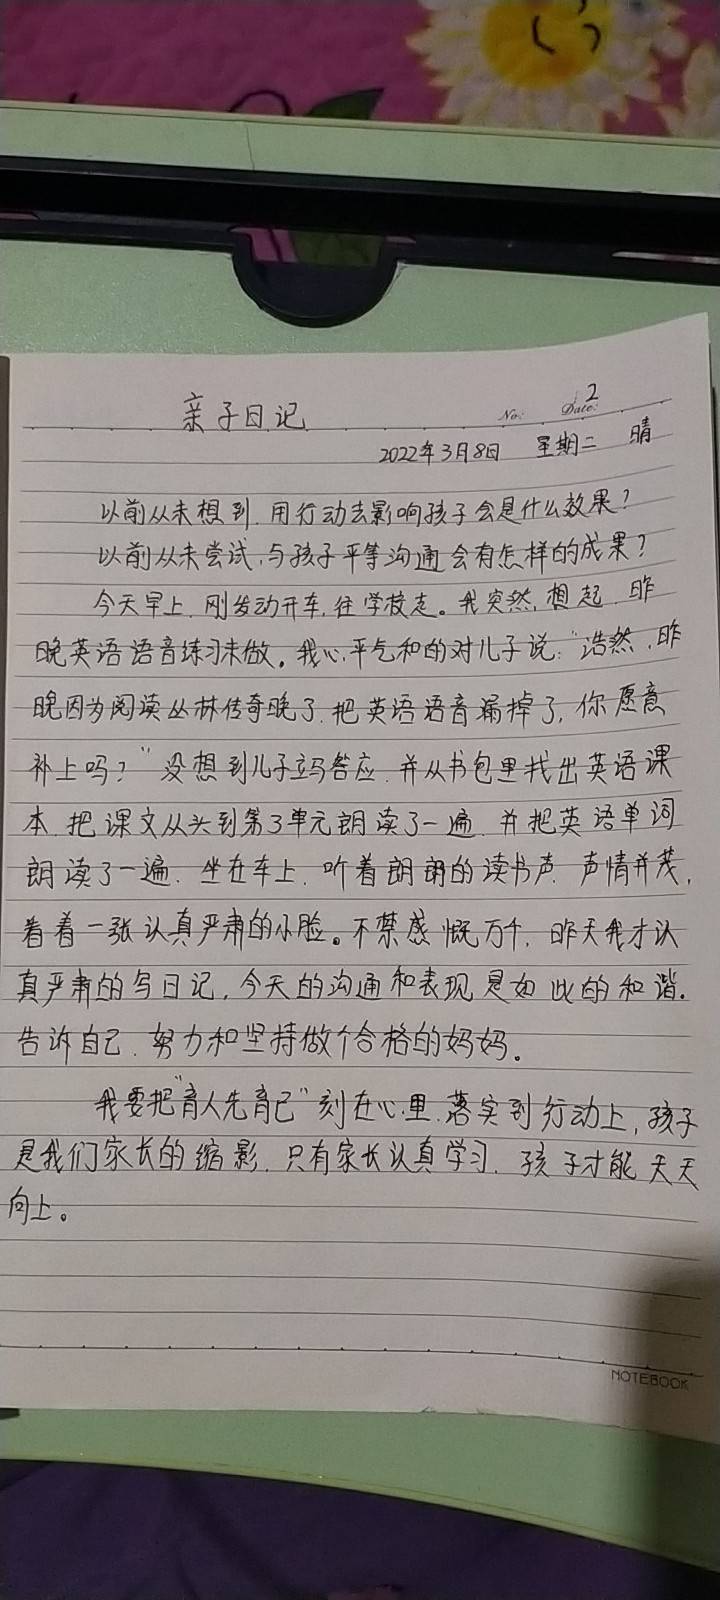 2
亲子日记
No: Date:
2022年3月8日 星期二 晴
以前从未想到,用行动去影响孩子会是什么效果?
以前从未尝试,与孩子平等沟通会有怎样的成果?
今天早上,刚发动开车,往学校走。我突然,想起,昨
晚英语语音练习未做。我心平气和的对儿子说:“浩然,昨
晚因为阅读丛林传奇晚了,把英语语音漏掉了,你愿意
补上吗?”没想到儿子立马答应,并从书包里找出英语课
本,把课文从头到第3单元朗读了一遍,并把英语单词
朗读了一遍,坐在车上,听着朗朗的读书声,声情并茂,
看着一张认真严肃的小脸。不禁感慨万千,昨天我才认
真严肃的写日记,今天的沟通和表现是如此的和谐。
告诉自己,努力和坚持做个合格的妈妈。
我要把“育人先育己”刻在心里,落实到行动上,孩子
是我们家长的缩影,只有家长认真学习,孩子才能天天
向上。
NOTEBOOK